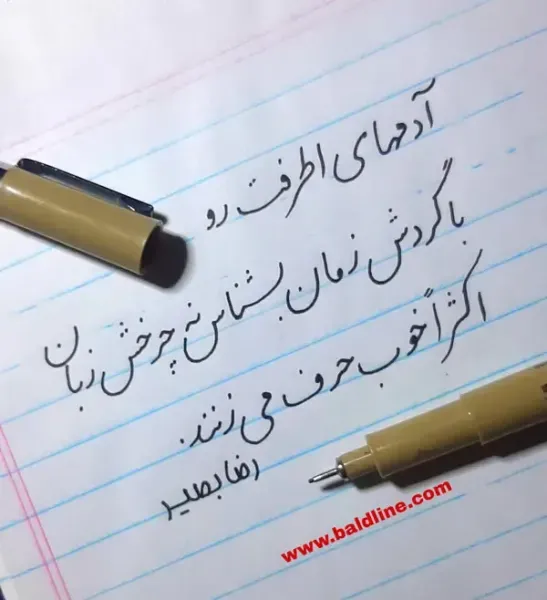 آدمهای اطرفت رو
با گردش زمان بشناس نه چرخش زبان
اکثراً خوب حرف می زنند.
رضا بصیر
www.baldline.com